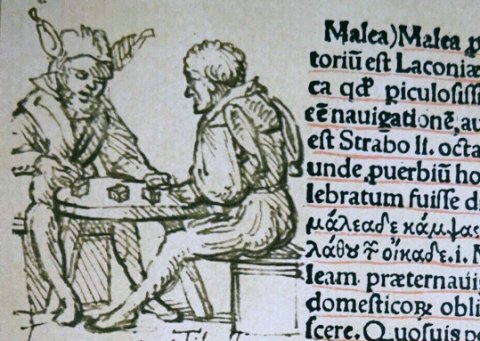 Malea)Malea p
toriũ est Laconiæ
ca qđ piculosiss
eẽ nauigationẽ, au
est Strabo li. octa
unde, ꝓuerbiũ ho
lebratum fuisse d
μάλεα δε κάμψας
λάθȣ οἴκαδε .i.
leam. præternauig
domesticoꝝ obli
scere. Quosuis pe